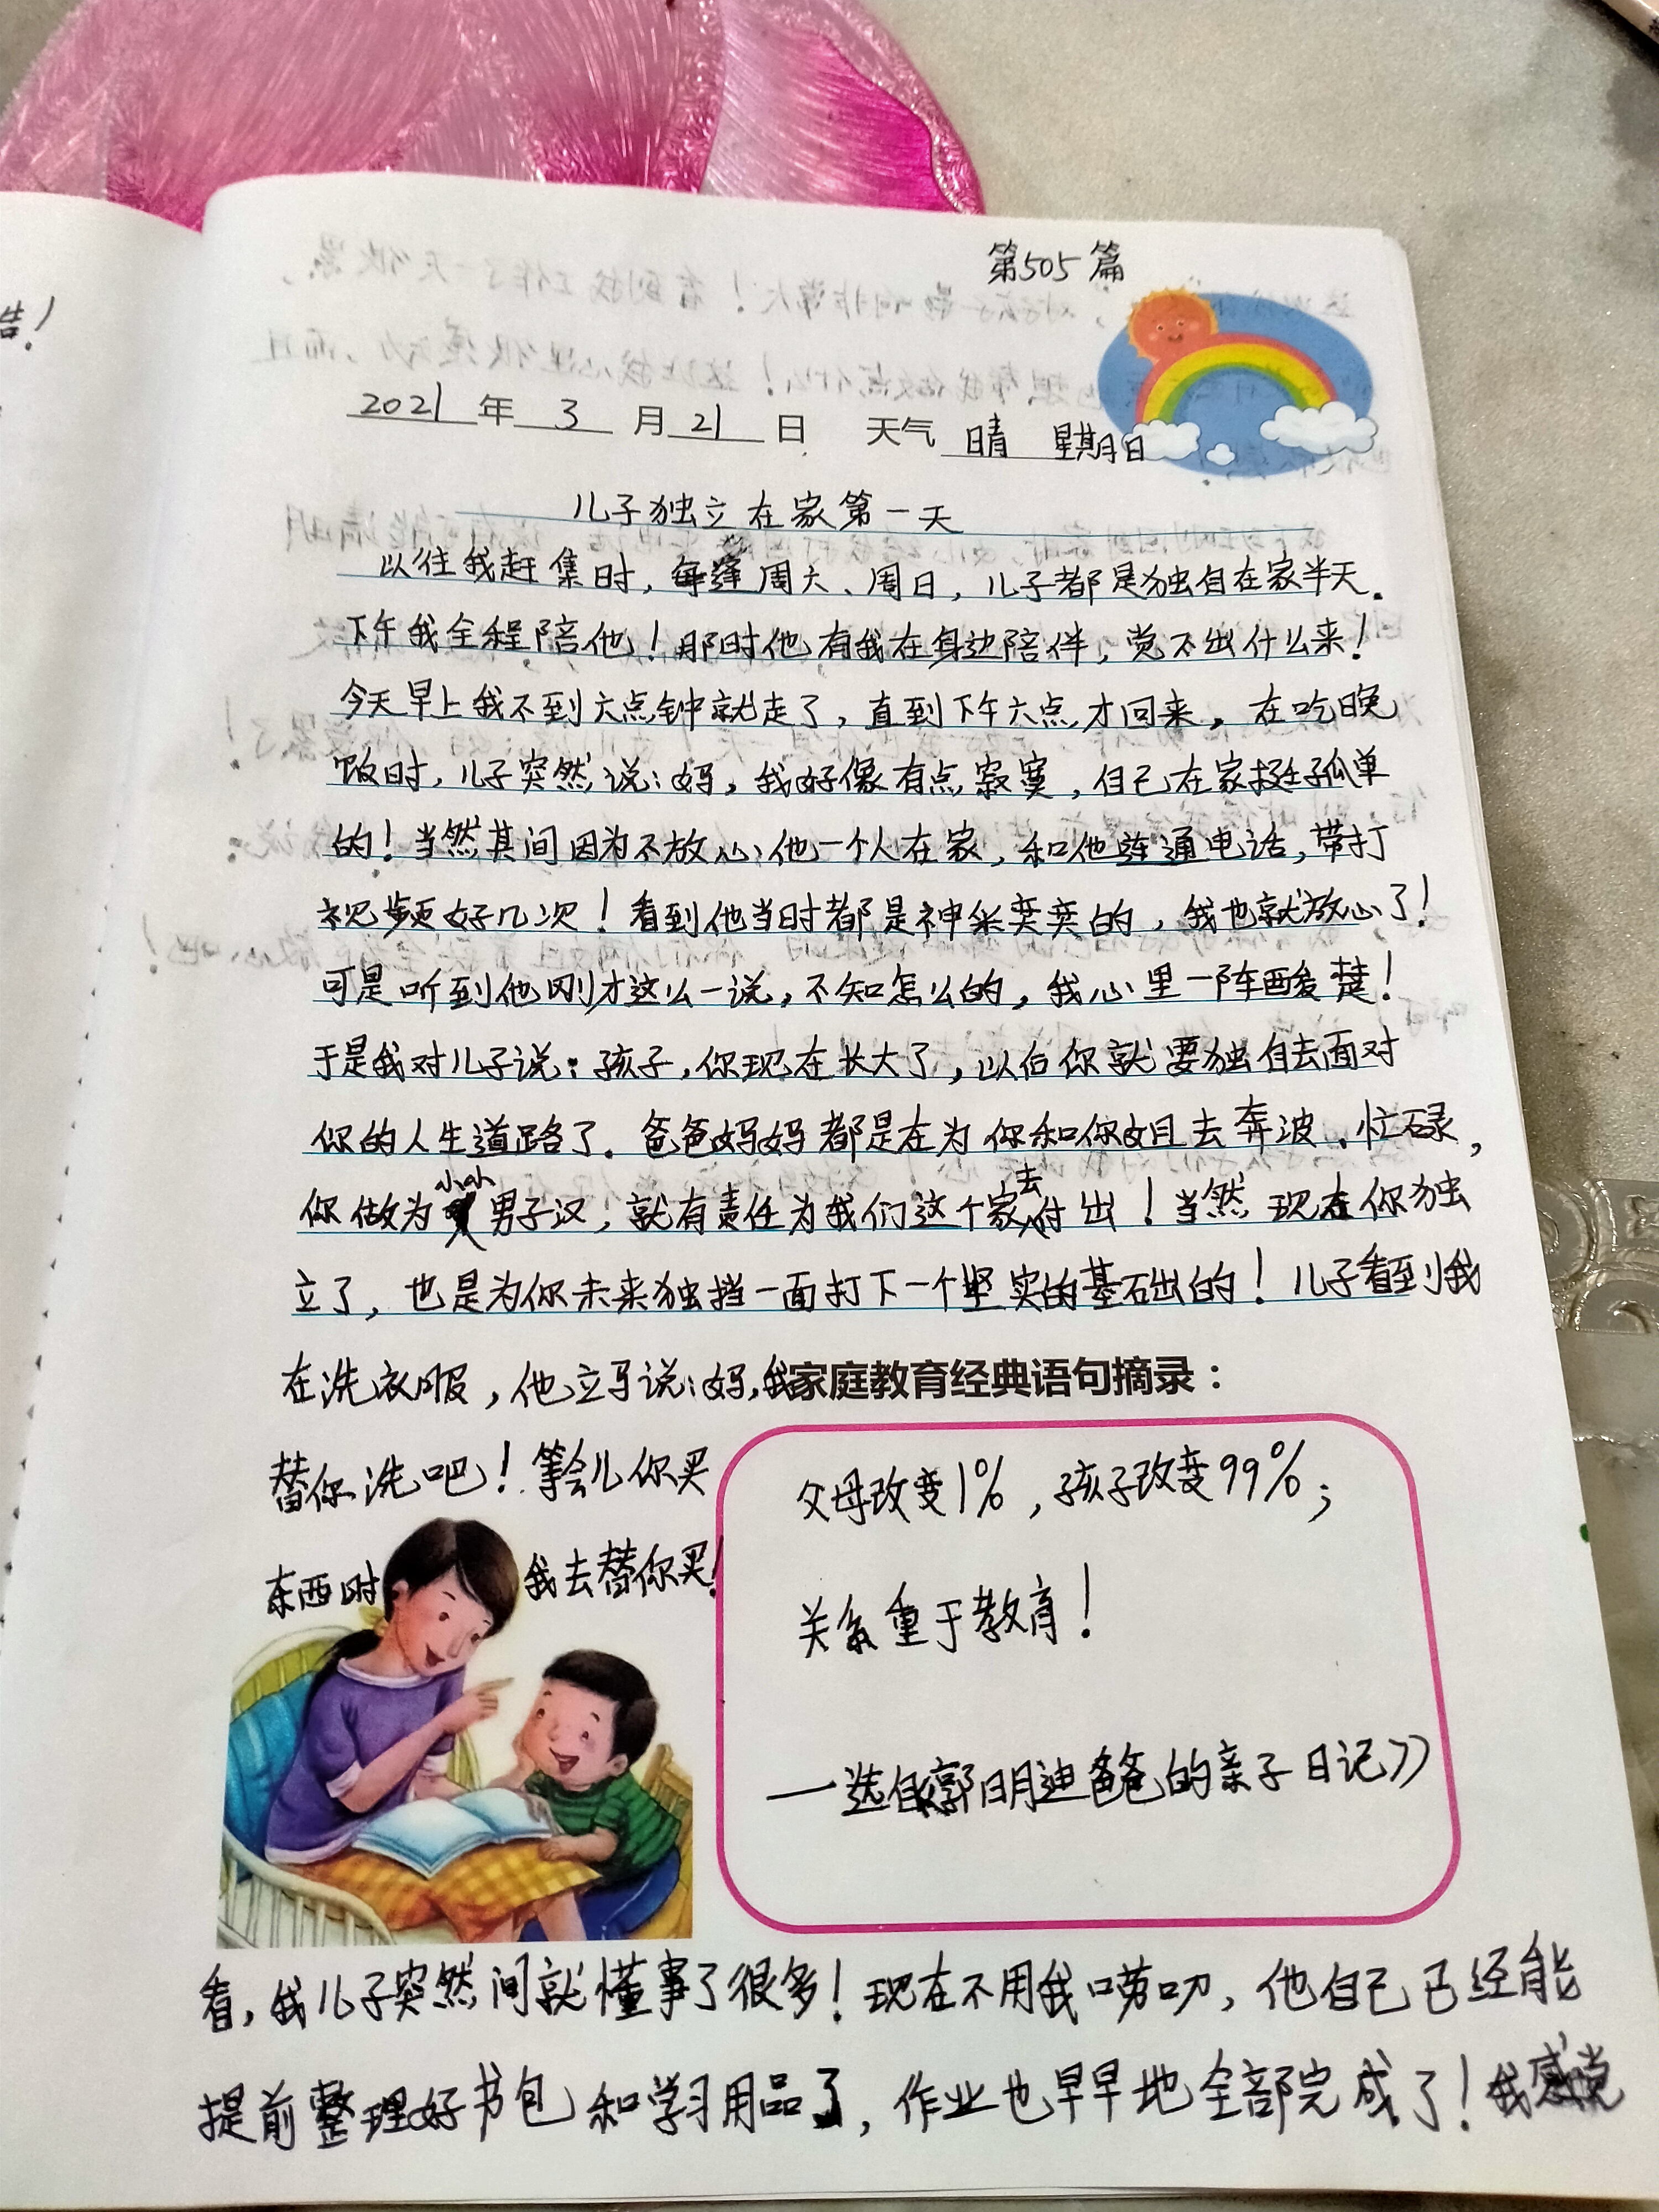 告！
第505篇
2021年 3 月 21 日 天气 晴 星期日
儿子独立在家第一天
以往我赶集时，每逢周六、周日，儿子都是独自在家半天。
下午我全程陪他！那时他有我在身边陪伴，觉不出什么来！
今天早上我不到六点钟就走了，直到下午六点才回来。在吃晚
饭时，儿子突然说：妈，我好像有点寂寞，自己在家挺孤单
的！当然其间因为不放心他一个人在家，和他连通电话，带打
视频好几次！看到他当时都是神采奕奕的，我也就放心了！
可是听到他刚才这么一说，不知怎么的，我心里一阵酸楚！
于是我对儿子说：孩子，你现在长大了，以后你就要独自去面对
你的人生道路了。爸爸妈妈都是在为你和你姐去奔波、忙碌，
你做为小小男子汉，就有责任为我们这个家去付出！当然现在你独
立了，也是为你未来独挡一面打下一个坚实的基石出的！儿子看到我
在洗衣服，他立马说：妈，我
替你洗吧！等会儿你买
东西时我去替你买！
家庭教育经典语句摘录：
父母改变1%，孩子改变99%；
关系重于教育！
—选自郭明迪爸爸的亲子日记》
看，我儿子突然间就懂事了很多！现在不用我唠叨，他自己已经能
提前整理好书包和学习用品了，作业也早早地全部完成了！我感觉